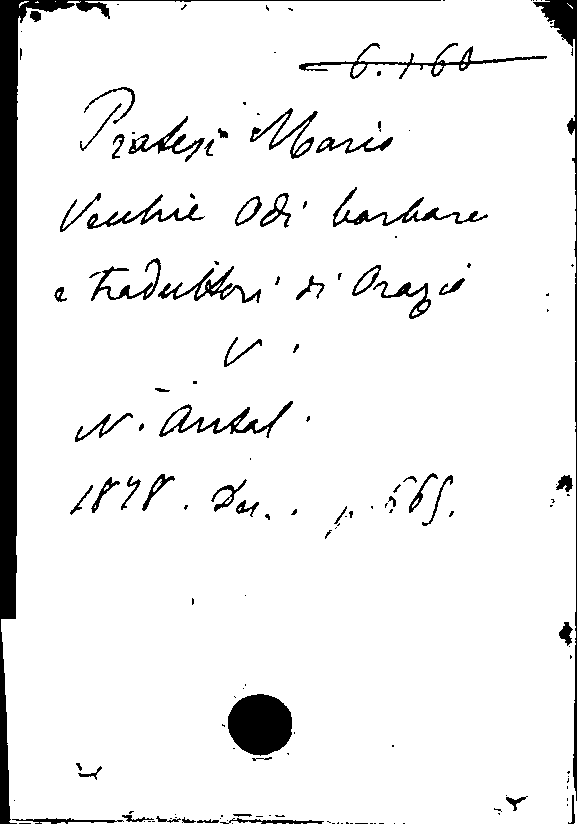 6.1.60
Pratesi Mario
Vecchie Odi barbare
e traduttori di Orazio
V.
N. Antol.
1878. Dec. p. 665.